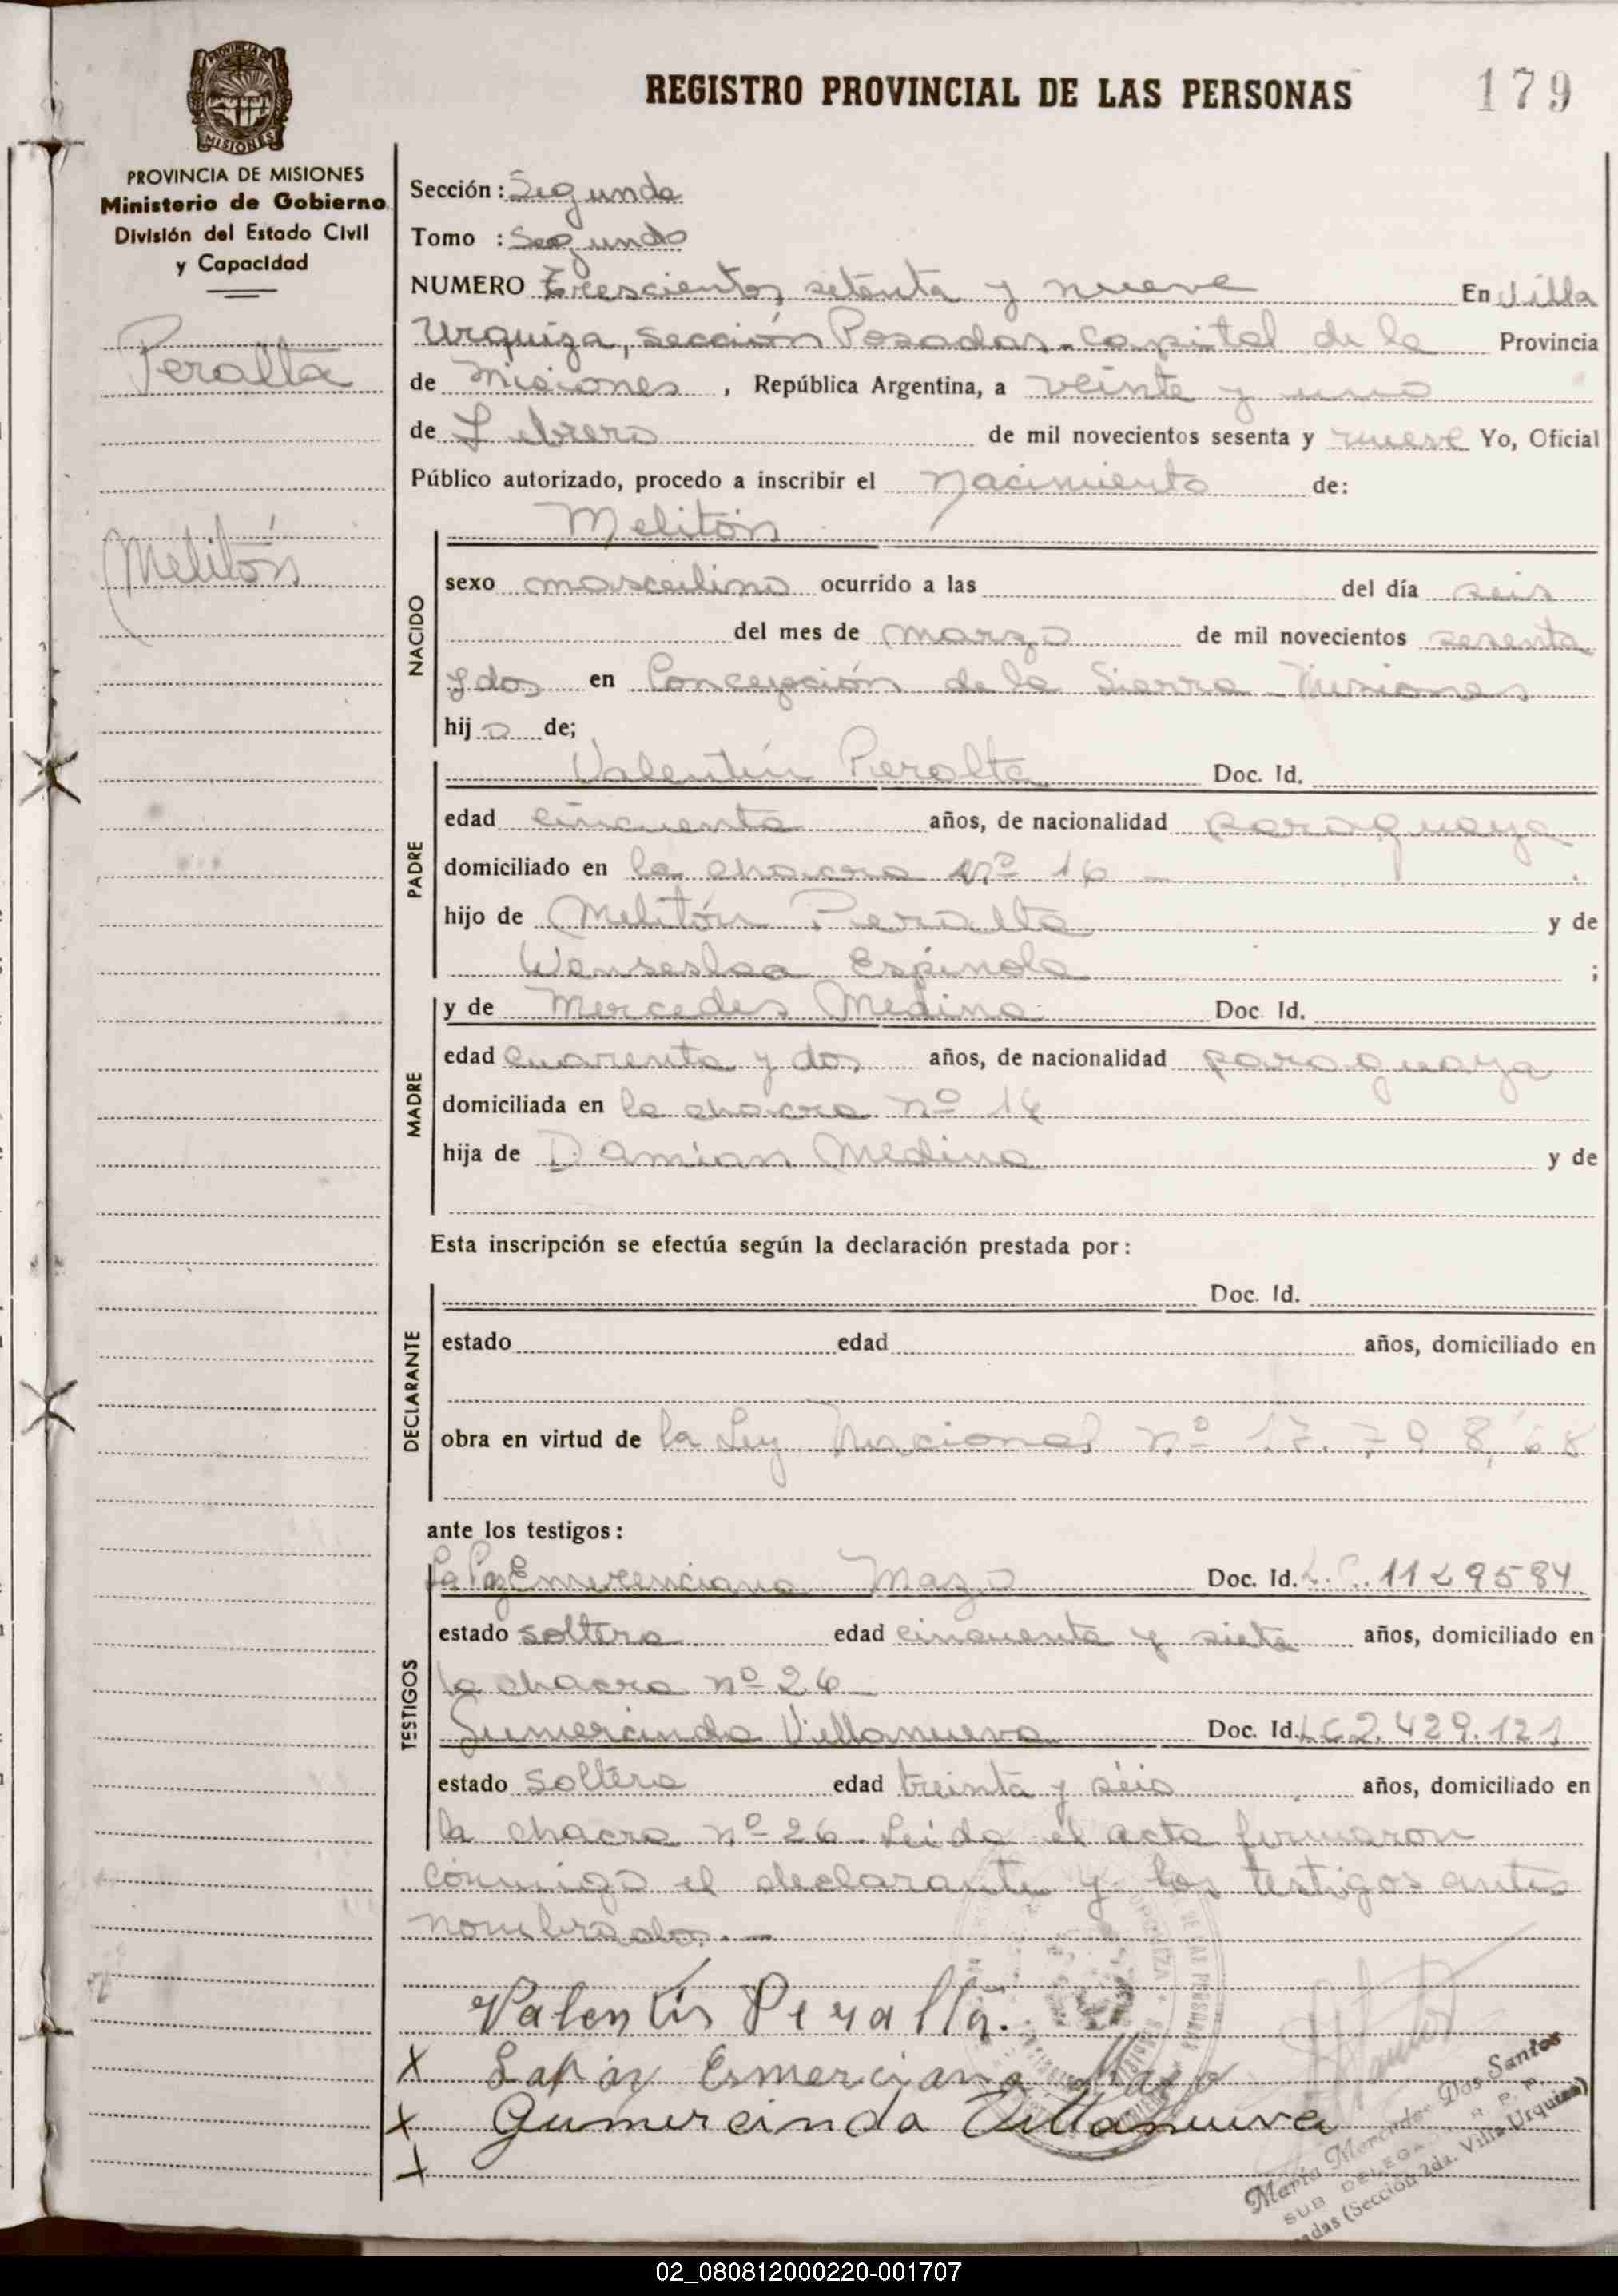 REGISTRO PROVINCIAL DE LAS PERSONAS 179
PROVINCIA DE MISIONES
MISIONES
PROVINCIA DE MISIONES
Ministerio de Gobierno
División del Estado Civil
y Capacidad
Peralta
Melitón
Sección : Segunda
Tomo : Segundo
NUMERO Trescientos setenta y nueve En Villa
Urquiza, sección Posadas - capital de la Provincia
de Misiones , República Argentina, a veinte y uno
de Febrero de mil novecientos sesenta y nueve Yo, Oficial
Público autorizado, procedo a inscribir el nacimiento de:
NACIDO
Melitón
sexo masculino ocurrido a las del día seis
del mes de marzo de mil novecientos sesenta
y dos en Concepción de la Sierra - Misiones
hijo de;
PADRE
Valentín Peralta Doc. Id.
edad cincuenta años, de nacionalidad paraguaya
domiciliado en la chacra Nº 16 -
hijo de Melitón Peralta y de
Wenseslaa Espinola ;
MADRE
y de Mercedes Medina Doc. Id.
edad cuarenta y dos años, de nacionalidad paraguaya
domiciliada en la chacra nº 16
hija de Damian Medina y de
Esta inscripción se efectúa según la declaración prestada por :
DECLARANTE
Doc. Id.
estado edad años, domiciliado en
obra en virtud de la Ley Nacional nº 17.798/68
ante los testigos :
TESTIGOS
La Paz Emerenciana Mazo Doc. Id. L.C. 1129584
estado soltera edad cincuenta y siete años, domiciliado en
la chacra nº 26
Gumercinda Villanueva Doc. Id. LC 2.429.121
estado soltera edad treinta y séis años, domiciliado en
la chacra nº 26. Leida el acta firmaron
conmigo el declarante y los testigos antes
nombrados. -
Valentin Peralta.
X Lapaz Esmerciana Mazo
X Gumercinda Villanueva
X
Maria Mercedes Dos Santos
SUB DELEGADA R. P. P.
adas (Sección 2da. Villa Urquiza)
02_080812000220-001707